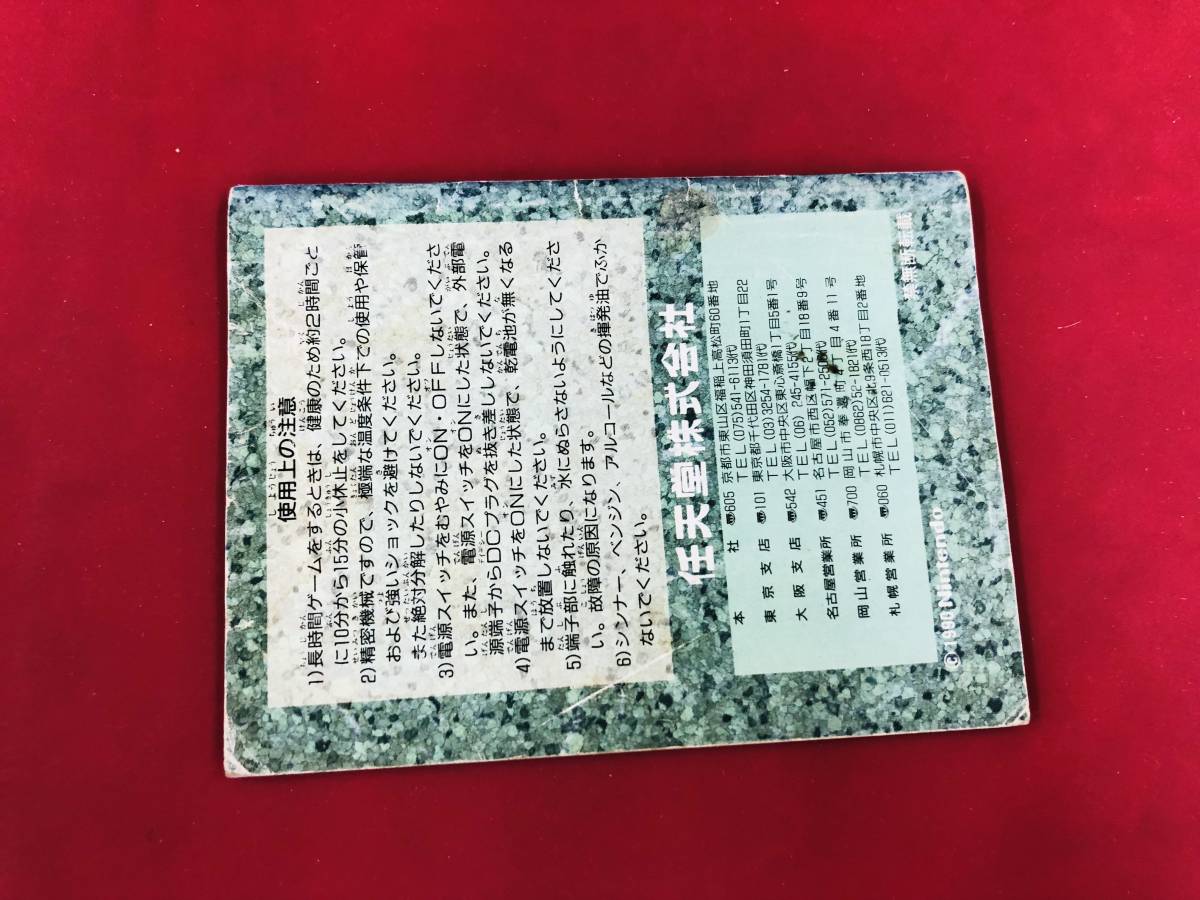 使用上の注意
1)長時間ゲームをするときは、健康のため約2時間ごと
に10分から15分の小休止をしてください。
2)精密機械ですので、極端な温度条件下での使用や保管
および強いショックを避けてください。
また絶対分解したりしないでください。
3)電源スイッチをむやみにON・OFFしないでくださ
い。また、電源スイッチをONにした状態で、外部電
源端子からDCプラグを抜き差ししないでください。
4)電源スイッチをONにした状態で、乾電池が無くなる
まで放置しないでください。
5)端子部に触れたり、水にぬらさないようにしてくださ
い。故障の原因になります。
6)シンナー、ベンジン、アルコールなどの揮発油でふか
ないでください。
任天堂株式会社
本社 〠605 京都市東山区福稲上高松町60番地
TEL (075)541-6113代
東京支店 〠101 東京都千代田区神田須田町1丁目22
TEL (03)3254-1781代
大阪支店 〠542 大阪市中央区東心斎橋1丁目5番1号
TEL (06) 245-4155代
名古屋営業所 〠451 名古屋市西区幅下2丁目18番9号
TEL (052)571-2506代
岡山営業所 〠700 岡山市奉還町4丁目4番11号
TEL (0862)52-1821代
札幌営業所 〠060 札幌市中央区北9条西18丁目2番地
TEL (011)621-0513代
Nintendo